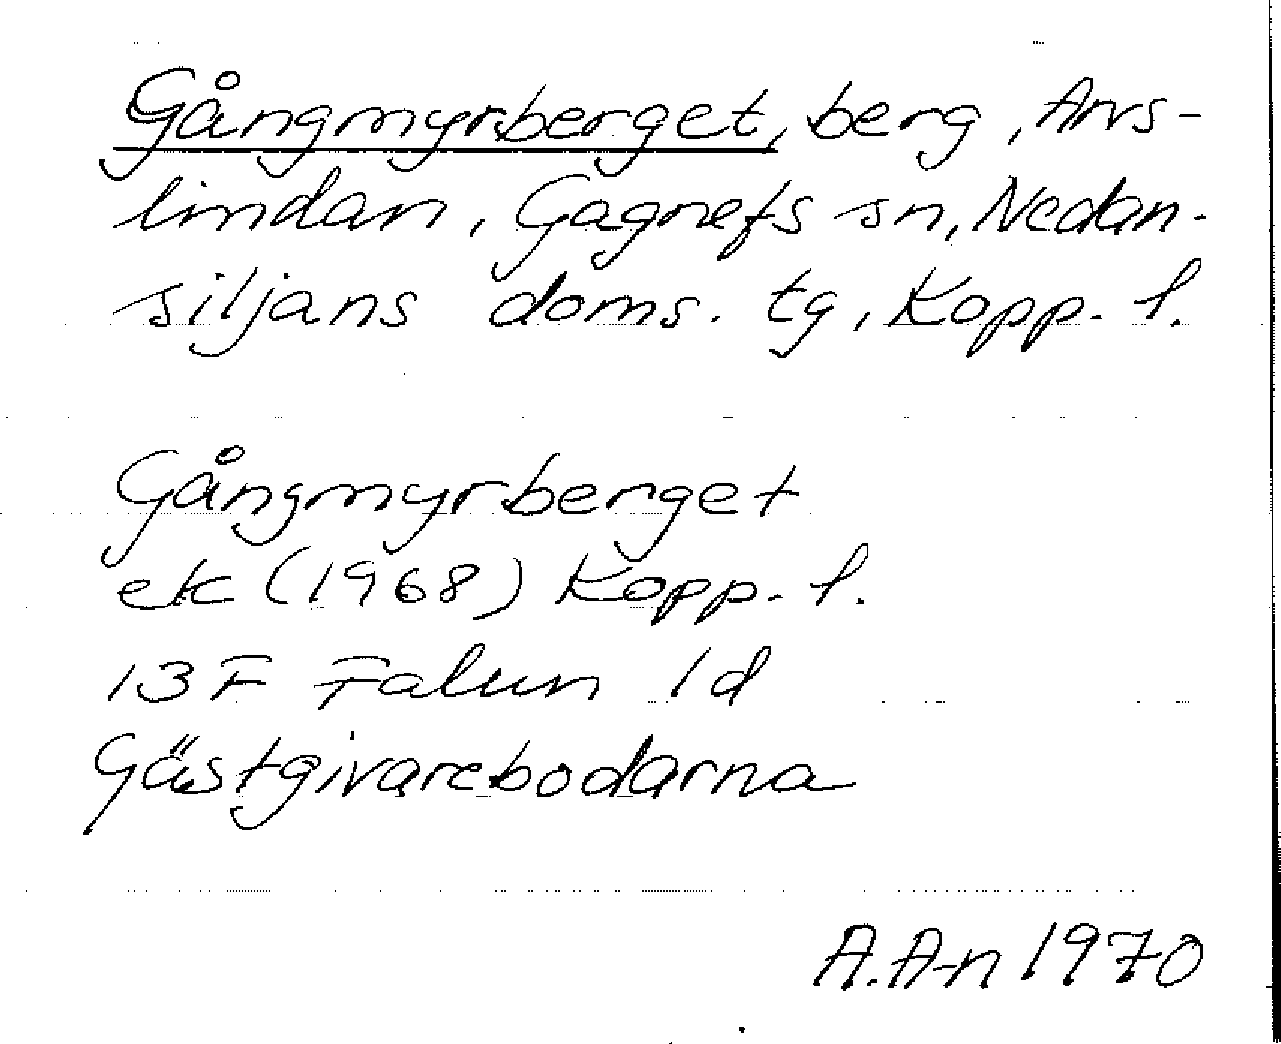 Gångmyrberget, berg, Arvs-
lindan, Gagnefs sn, Nedan-
siljans doms. tg, Kopp. l.
Gångmyrberget
ek (1968) Kopp. l.
13 F Falun 1d
Gästgivarebodarna
A.A-n 1970